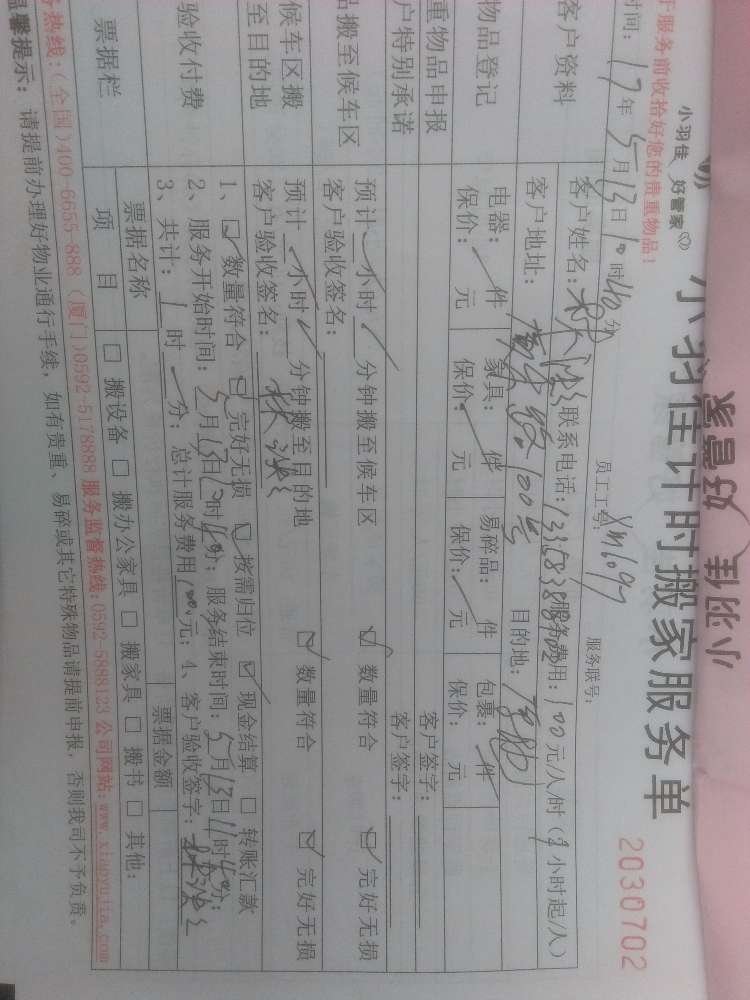 小羽佳 好管家
小羽佳计时搬家服务单
2030702
服务前收拾好您的贵重物品!
时间: 17年5月13日10时40分 员工工号: 服务联号:
客户资料 客户姓名: 联系电话: 服务费用: 100元/人/时( 小时起/人)
客户地址: 100号 目的地:
物品登记 电器: 件 家具: 件 易碎品: 件 包裹: 件
保价: 元 保价: 元 保价: 元 保价: 元
重物品申报 客户签字:
户特别承诺 客户签字:
品搬至候车区 预计 小时 分钟搬至候车区 ☑ 数量符合 ☑ 完好无损
客户验收签名:
候车区搬至目的地 预计 小时 分钟搬至目的地 ☑ 数量符合 ☑ 完好无损
客户验收签名:
验收付费 1、☑ 数量符合 ☑ 完好无损 ☑ 按需归位 ☑ 现金结算 □ 转账汇款
2、服务开始时间: 5月13日10时40分; 服务结束时间: 5月13日11时40分;
3、共计: 1时 分; 总计服务费用100元; 4、客户验收签字:
票据栏 票据名称 票据金额
项目 □ 搬设备 □ 搬办公家具 □ 搬家具 □ 搬书 □ 其他:
务热线:(全国)400-6655-888 (厦门)0592-5178888 服务监督热线:0592-5888123 公司网站:www.xiaoyujia.com
温馨提示: 请提前办理好物业通行手续, 如有贵重、易碎或其它特殊物品请提前申报, 否则我司不予负责。